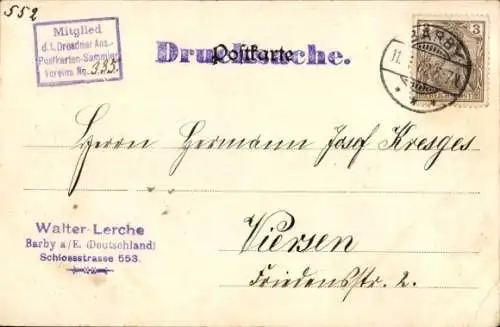 552
Mitglied
d. I. Dresdner Ans.-
Postkarten-Sammler
Vereins No. 335.
Postkarte
Drucksache.
BARBY
11.
3
Herrn Hermann Josef Kresges
Viersen
Friedensstr. 2.
Walter Lerche
Barby a/E. (Deutschland)
Schlossstrasse 553.